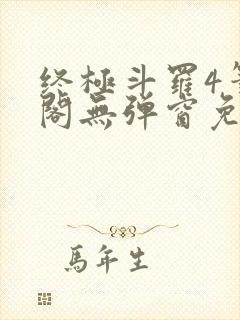 终極斗羅4筆
閣無彈窗免
馬年生